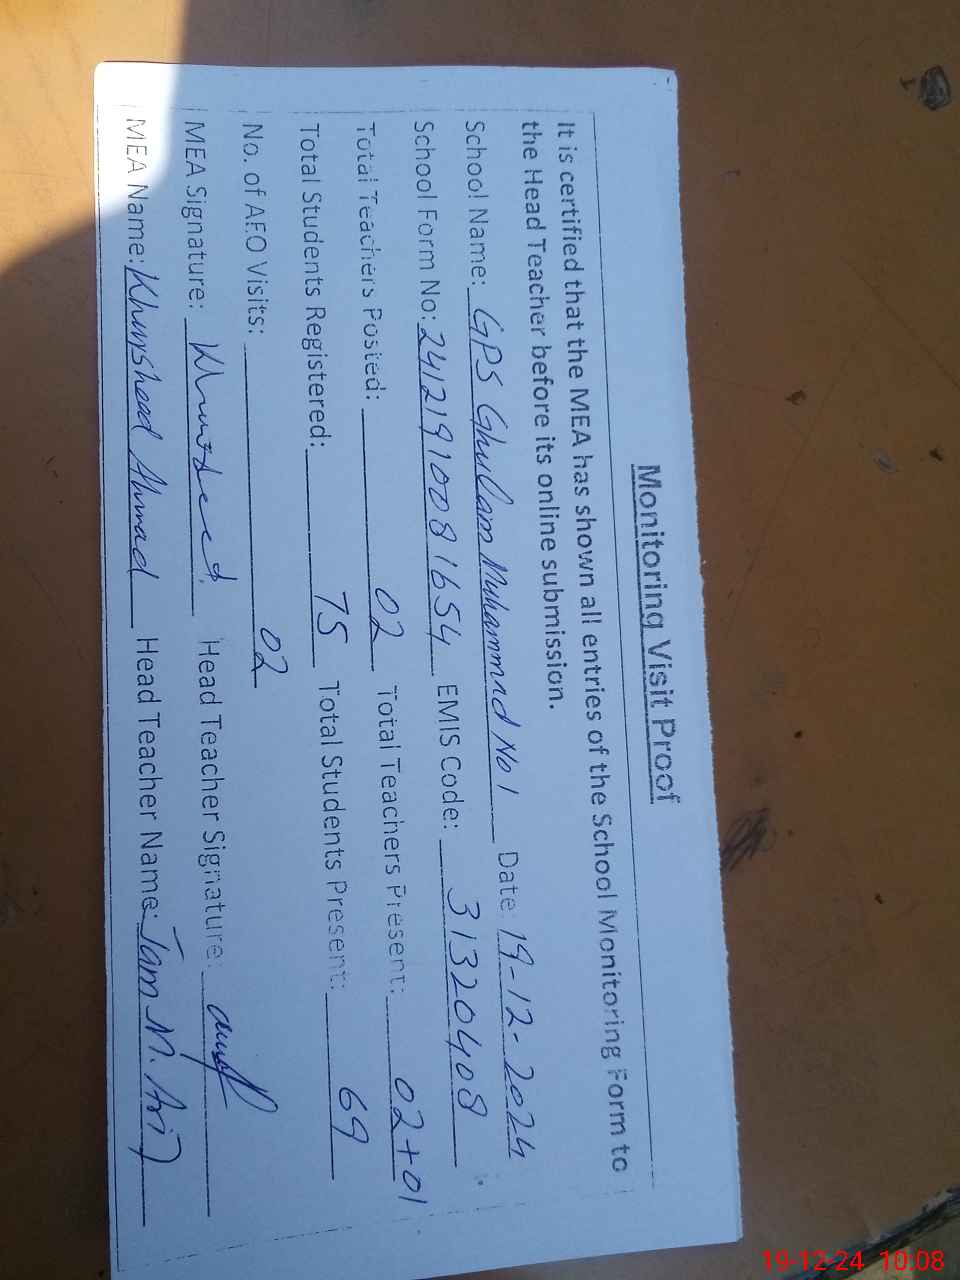 Monitoring Visit Proof
It is certified that the MEA has shown all entries of the School Monitoring Form to
the Head Teacher before its online submission.
School Name: GPS Ghulam Muhammad No 1 Date: 19-12-2024
School Form No: 24121910081654 EMIS Code: 31320408
Total Teachers Posted: 02 Total Teachers Present: 02+01
Total Students Registered: 75 Total Students Present: 69
No. of AEO Visits: 02
MEA Signature: Khursheed Head Teacher Signature:
MEA Name: Khursheed Ahmad Head Teacher Name: Jam M.
19-12-24 10.08